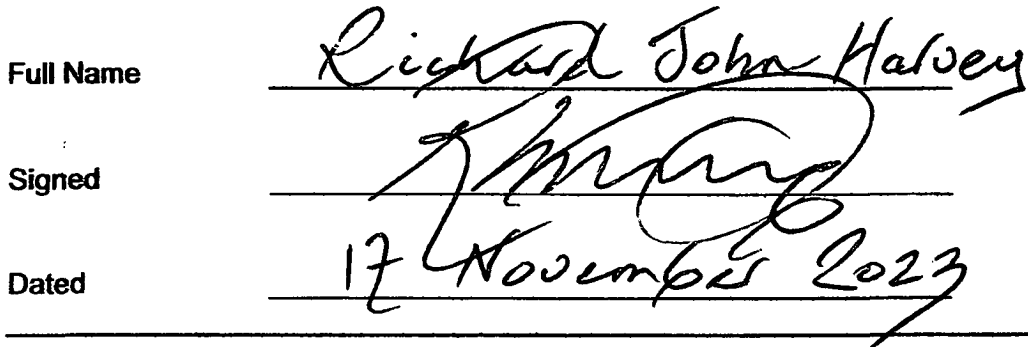 Full Name Richard John Harvey
Signed
Dated 17 November 2023